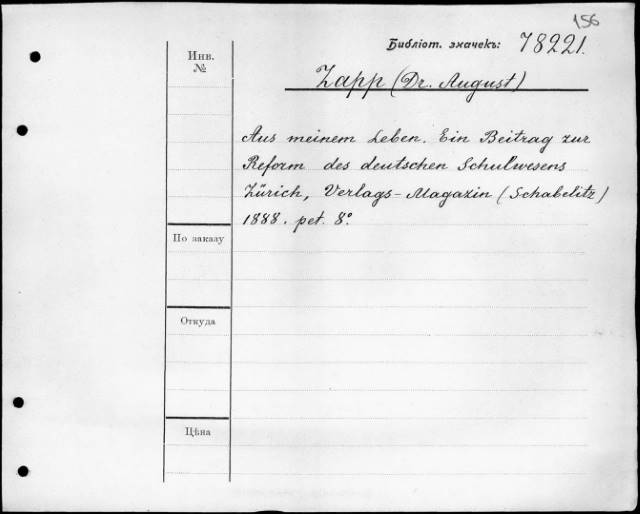 156
Библіот. значекъ: 78221.
Инв.
№
Zapp (Dr. August)
Aus meinem Leben. Ein Beitrag zur
Reform des deutschen Schulwesens
Zürich, Verlags-Magazin (Schabelitz)
1888. pet. 8°.
По заказу
Откуда
Цѣна